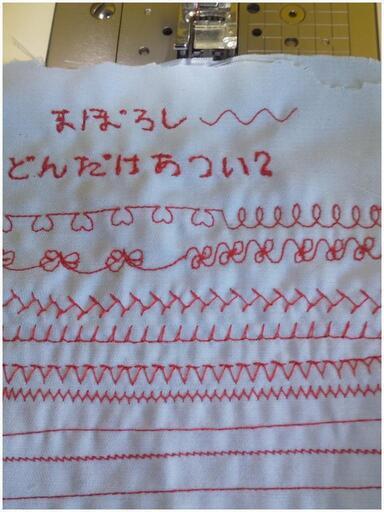 まぼろし〜
どんだけあつい?